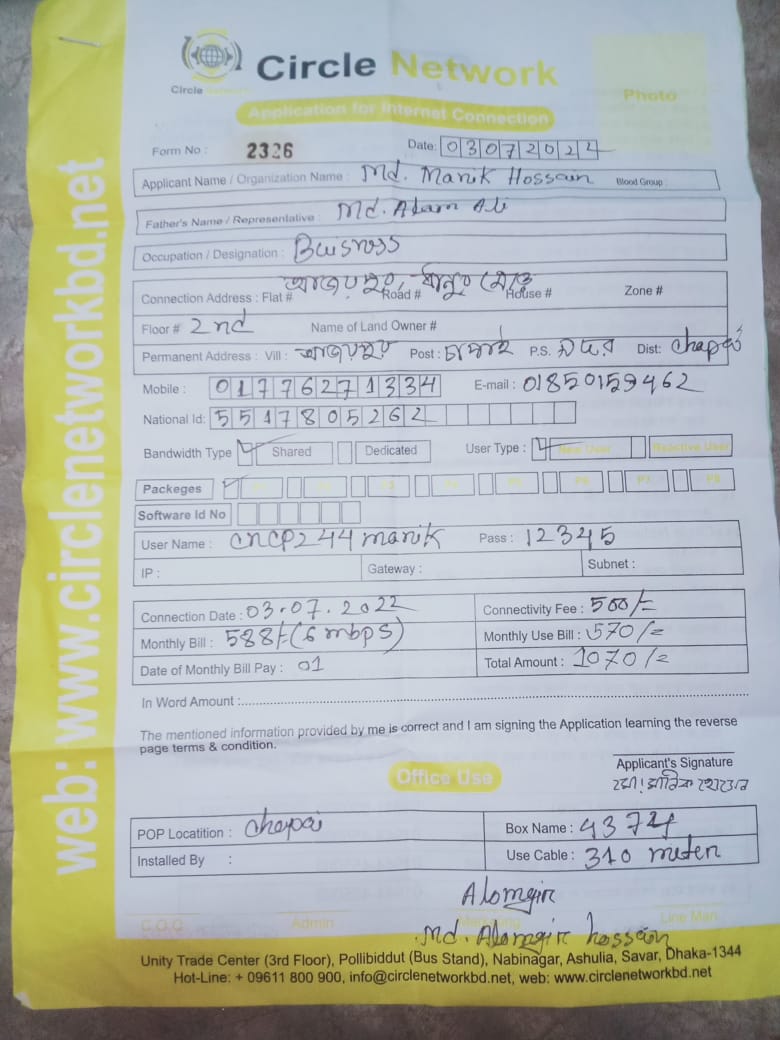 Circle Network
Circle Network
Application for Internet Connection
Photo
Form No : 2326 Date: 03072024
Applicant Name / Organization Name : Md. Manik Hossain Blood Group :
Father's Name / Representative : Md. Alam Ali
Occupation / Designation : Buisness
Connection Address : Flat # Road # House # Zone #
Floor # 2nd Name of Land Owner #
Permanent Address : Vill : Post : P.S. সদর Dist: Chapai
Mobile : 01776271334 E-mail : 01850159462
National Id: 5517805262
Bandwidth Type Shared Dedicated User Type : New User Reactive User
Packeges P1 P2 P3 P4 P5 P6 P7 P8
Software Id No
User Name : CNCP244manik Pass : 12345
IP : Gateway : Subnet :
Connection Date : 03.07.2022 Connectivity Fee : 500/=
Monthly Bill : 588/-(6 mbps) Monthly Use Bill : 570/=
Date of Monthly Bill Pay : 01 Total Amount : 1070/=
In Word Amount :
The mentioned information provided by me is correct and I am signing the Application learning the reverse
page terms & condition.
Applicant's Signature
মোঃ মানিক হোসেন
Office Use
POP Locatition : Chapai Box Name : 4374
Installed By : Use Cable : 310 meter
Alomgir
C.O.O Admin Marketing Line Man
Md. Alomgir hossain
Unity Trade Center (3rd Floor), Pollibiddut (Bus Stand), Nabinagar, Ashulia, Savar, Dhaka-1344
Hot-Line: + 09611 800 900, info@circlenetworkbd.net, web: www.circlenetworkbd.net
web: www.circlenetworkbd.net